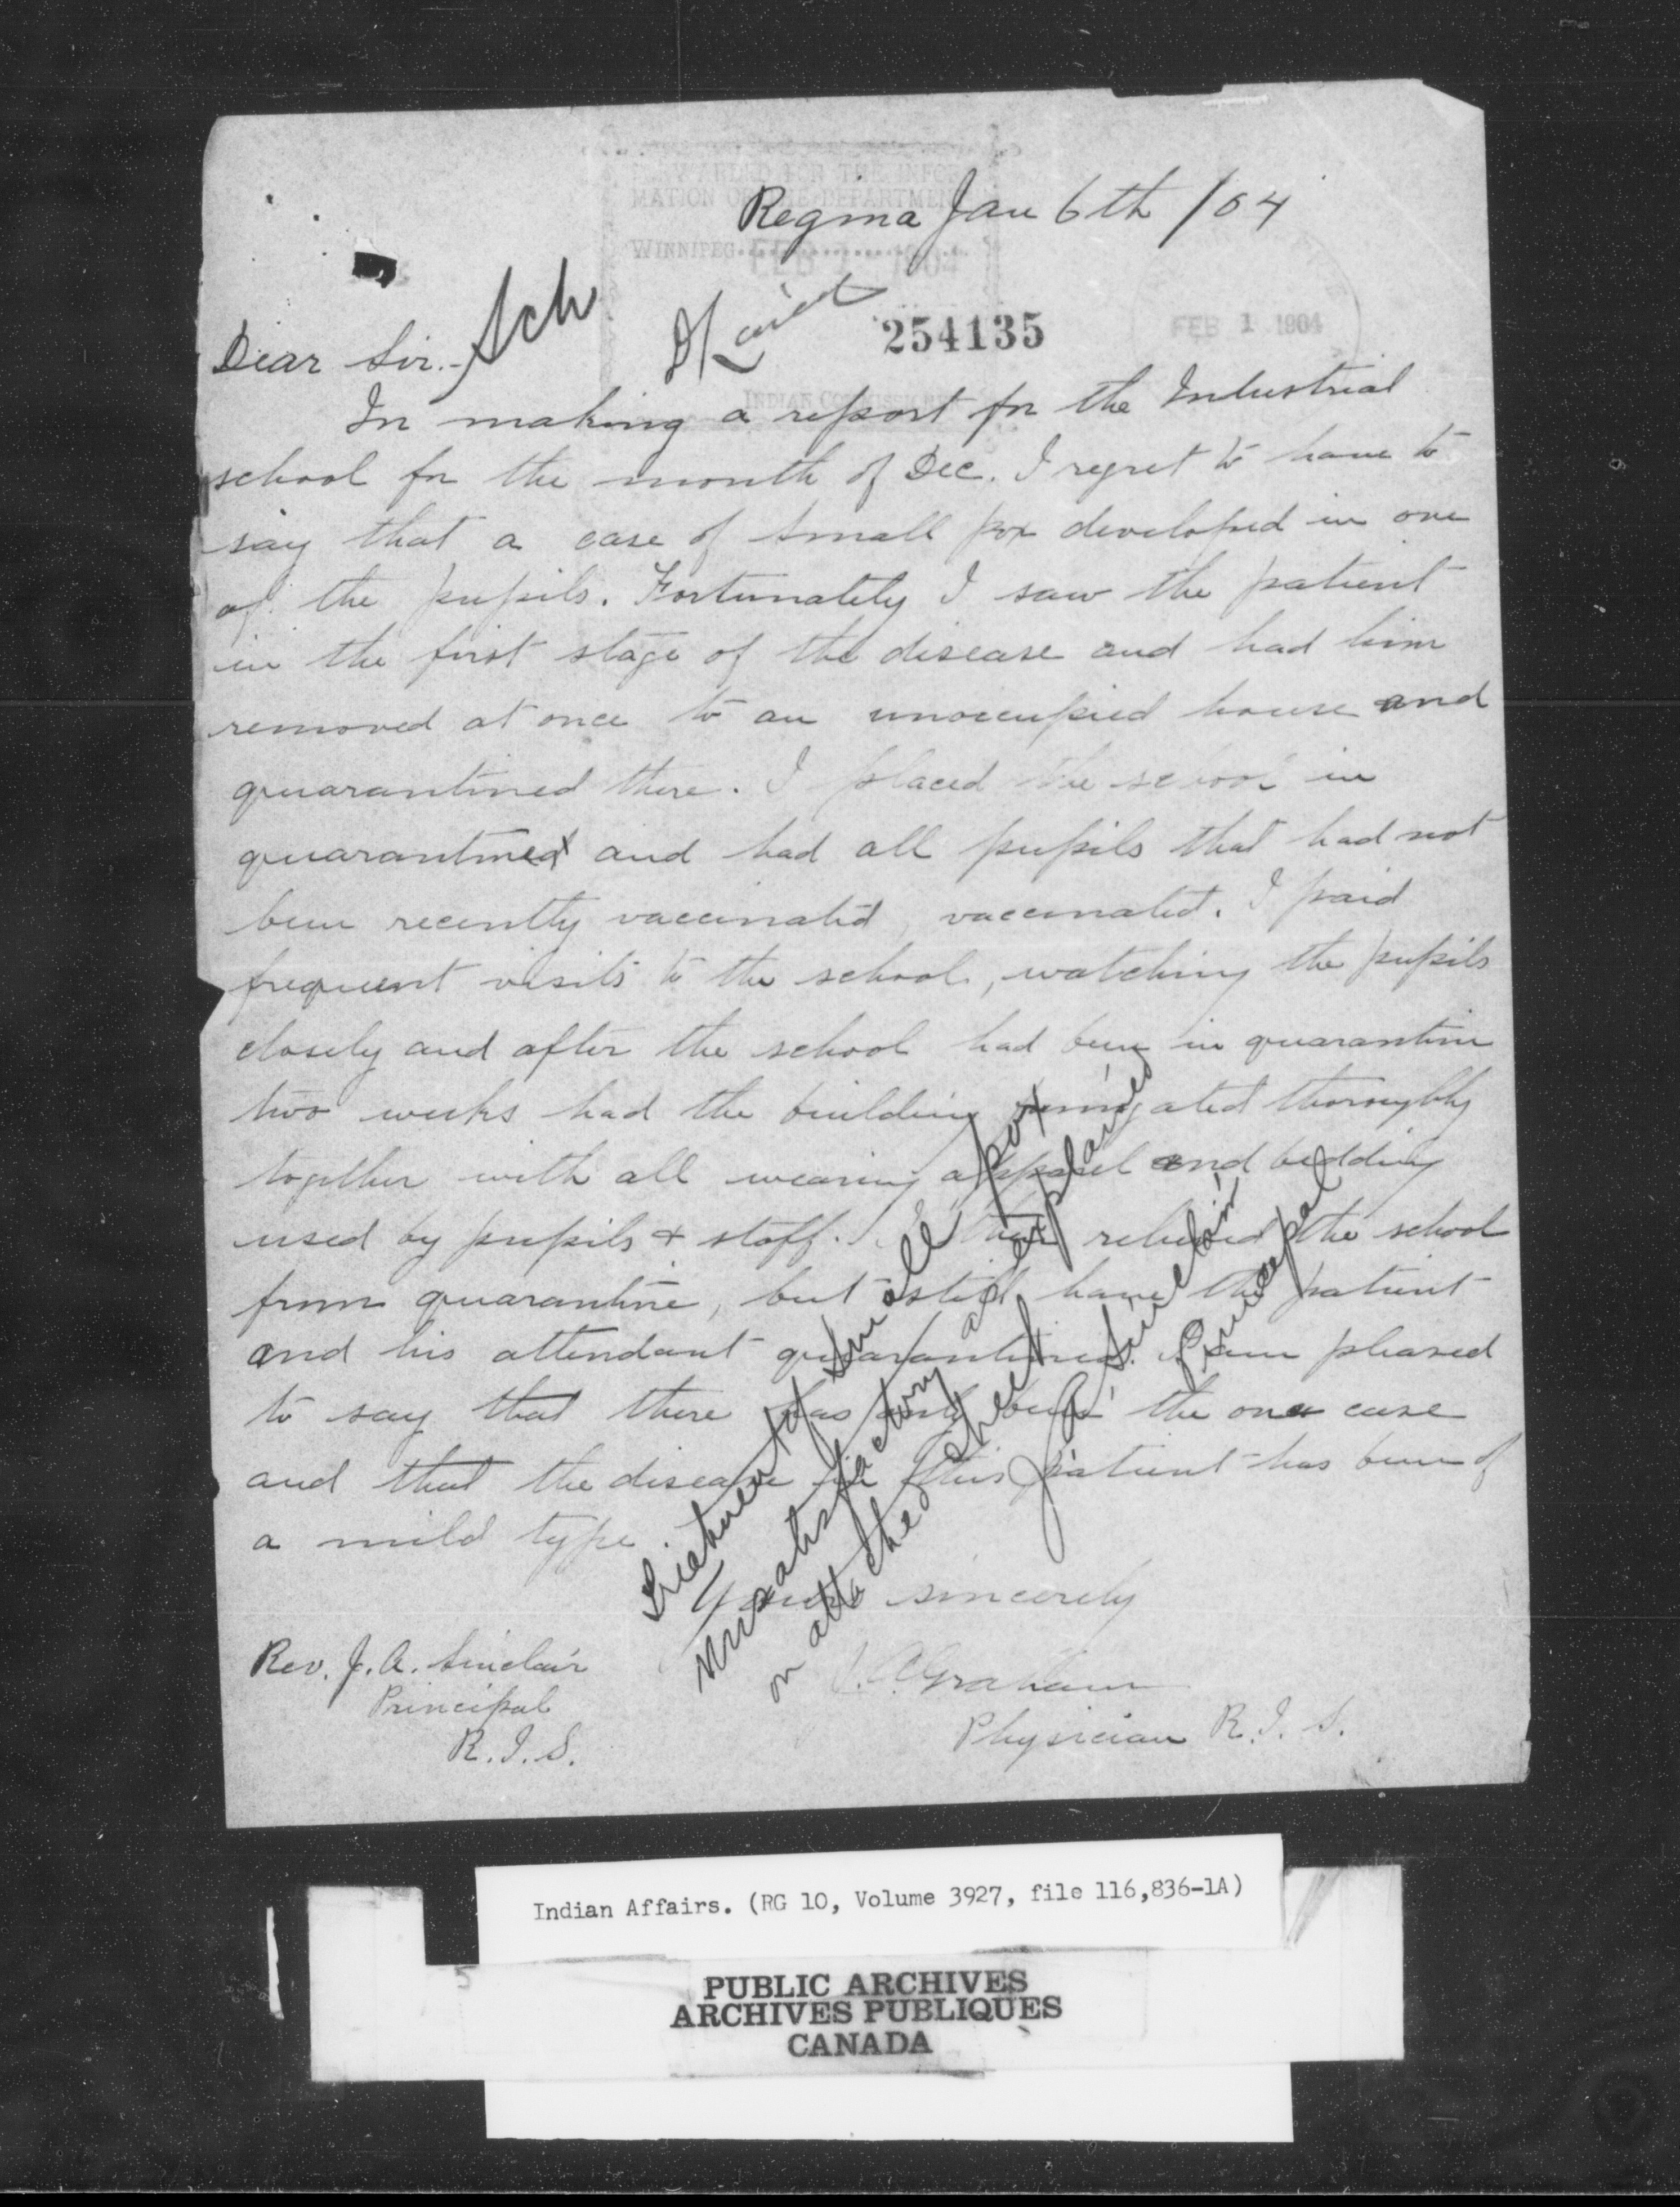 FORWARDED FOR THE INFOR-
MATION OF THE DEPARTMENT
Regina Jan 6th /04
WINNIPEG FEB 1 1904
Sch
254135
FEB 1 1904
Dear Sir.-
INDIAN COMMISSIONER
In making a report for the Industrial
school for the month of Dec. I regret to have to
say that a case of small pox developed in one
of the pupils. Fortunately I saw the patient
in the first stage of the disease and had him
removed at once to an unoccupied house and
quarantined there. I placed the school in
quarantined and had all pupils that had not
been recently vaccinated, vaccinated. I paid
frequent visits to the school, watching the pupils
closely and after the school had been in quarantine
two weeks had the building fumigated thoroughly
together with all wearing apparel and bedding
used by pupils & staff. I then released the school
from quarantine, but still have the patient
and his attendant quarantined. I am pleased
to say that there has only been the one case
and that the disease in this patient has been of
a mild type
Yours sincerely
Rev. J. A. Sinclair
Principal
R. I. S.
Graham
Physician R. I. S.
Treatment of small pox
unsatisfactory as explained
on attached sheet
J A Sinclair
Principal
Indian Affairs. (RG 10, Volume 3927, file 116,836-1A)
PUBLIC ARCHIVES
ARCHIVES PUBLIQUES
CANADA